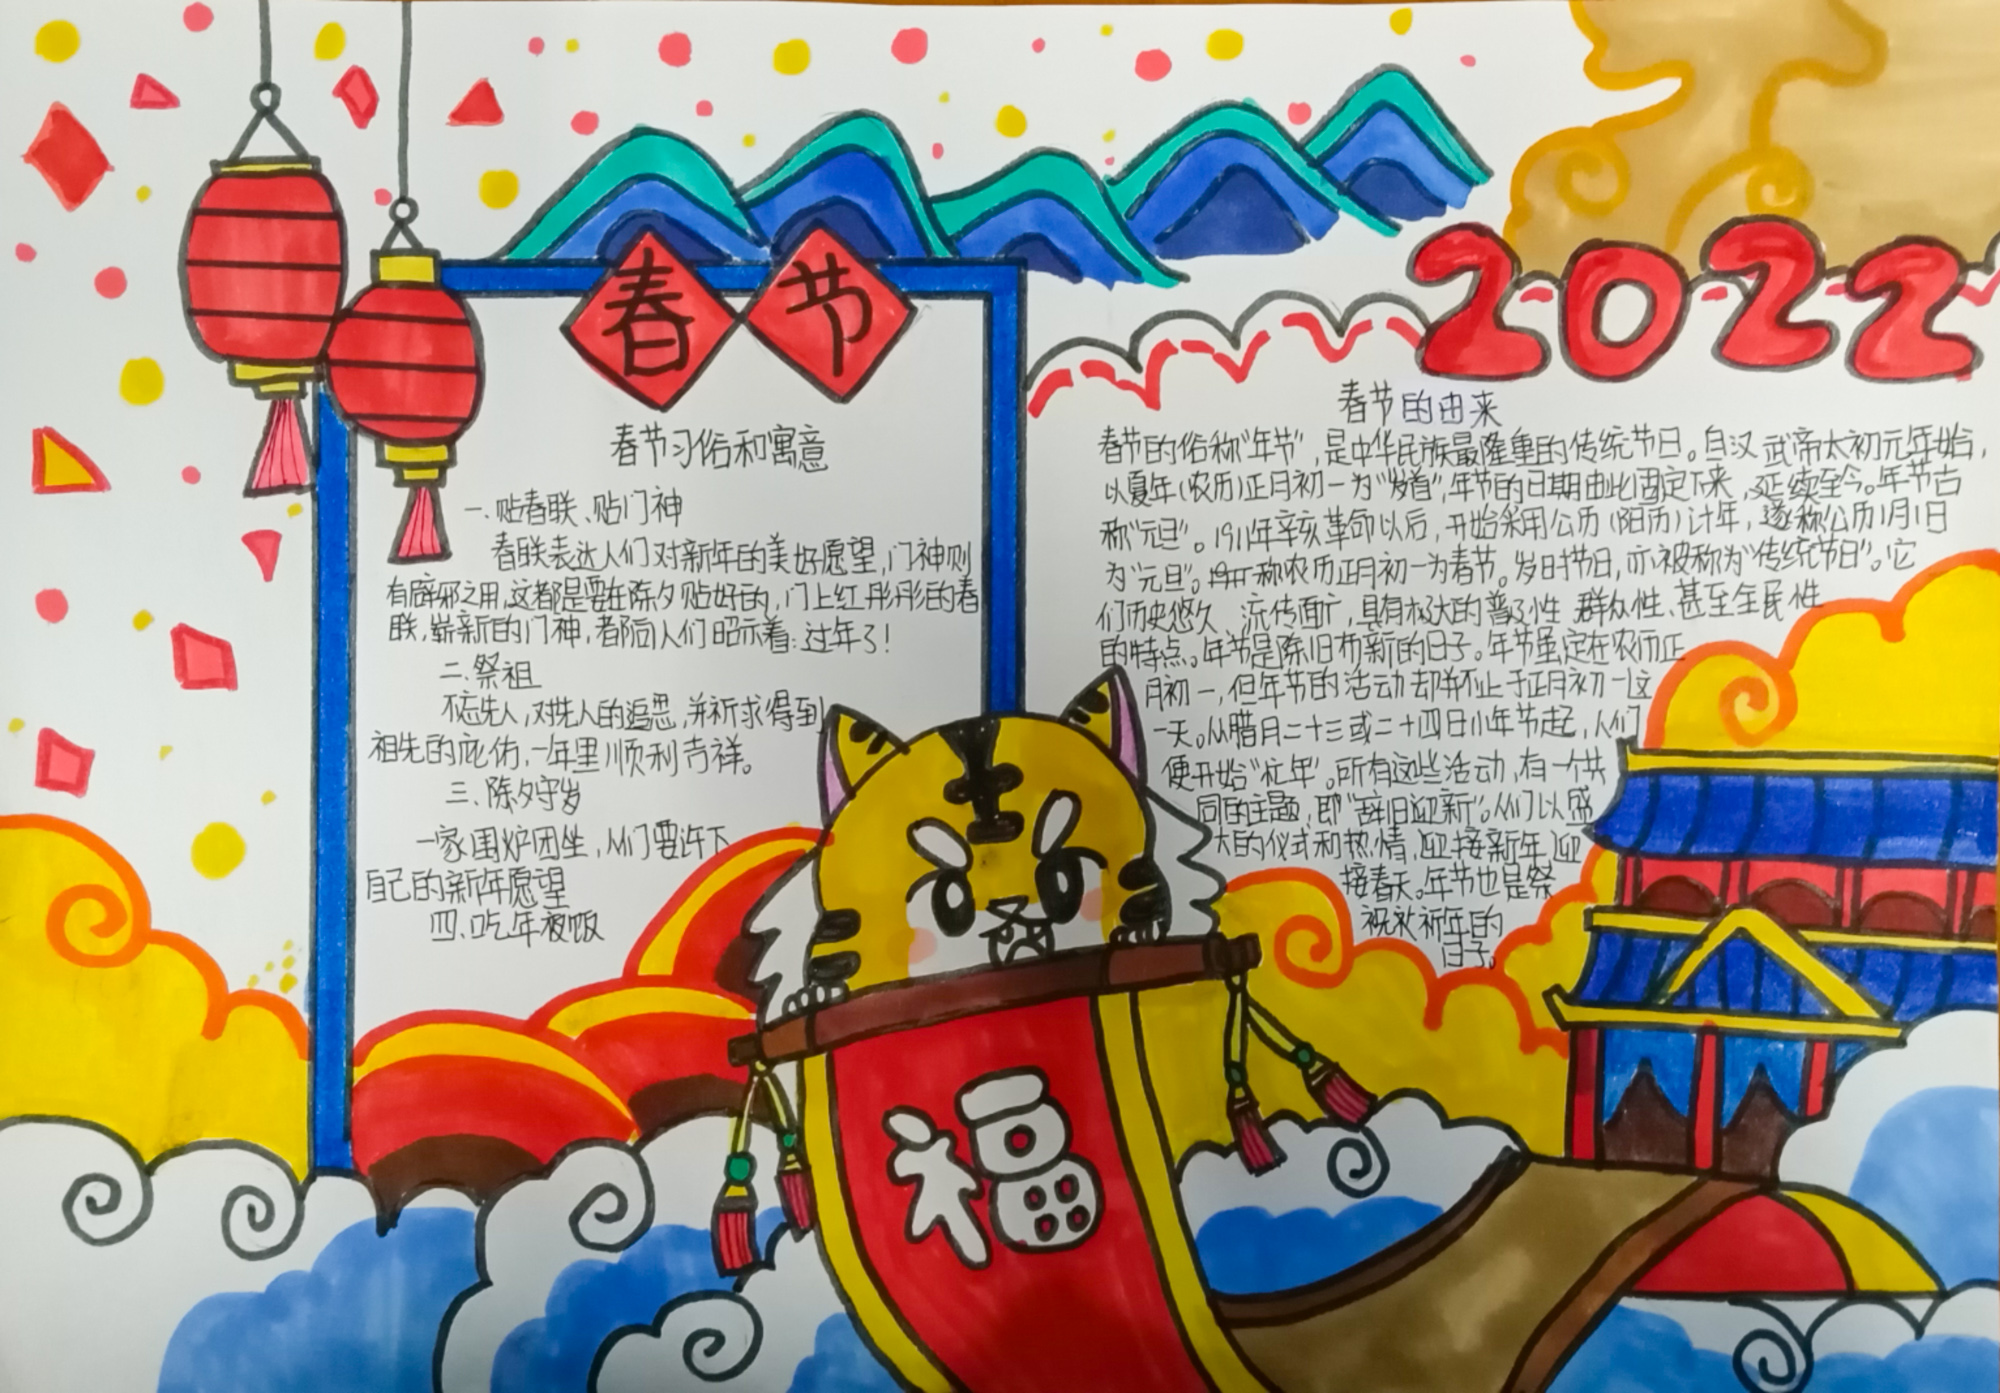 春节
2022
春节习俗和寓意
一.贴春联、贴门神
春联表达人们对新年的美好愿望,门神则
有辟邪之用,这都是要在除夕贴好的,门上红彤彤的春
联,崭新的门神,都向人们昭示着:过年了!
二.祭祖
不忘先人,对先人的追思,并祈求得到
祖先的庇佑,一年里顺利吉祥。
三.除夕守岁
一家围炉团坐,人们要许下
自己的新年愿望
四.吃年夜饭
春节的由来
春节的俗称“年节”,是中华民族最隆重的传统节日。自汉武帝太初元年始,
以夏年(农历)正月初一为“岁首”,年节的日期由此固定下来,延续至今。年节古
称“元旦”。1911年辛亥革命以后,开始采用公历(阳历)计年,遂称公历1月1日
为“元旦”。称农历正月初一为春节。岁时节日,亦被称为“传统节日”。它
们历史悠久 流传面广,具有极大的普及性 群众性、甚至全民性
的特点。年节是除旧布新的日子。年节虽定在农历正
月初一,但年节的活动却并不止于正月初一这
一天。从腊月二十三或二十四日小年节起,人们
便开始“忙年”。所有这些活动,有一个共
同的主题,即“辞旧迎新”。人们以盛
大的仪式和热情,迎接新年 迎
接春天。年节也是祭
祝祈年的
日子。
福